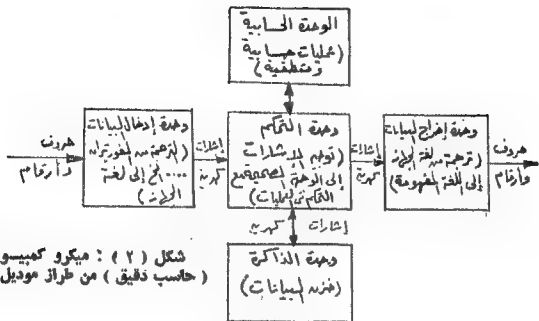 الوحدة الحسابية
(عمليات حسابية
ومنطقية)
حروف
وأرقام
وحدة إدخال البيانات
(ترجمة من الفورتران
.... الخ إلى لغة
الجهاز)
إشارات
كهربية
وحدة التحكم
(توجيه الإشارات
إلى الوحدة الصحيحة مع
التحكم في العمليات)
إشارات
كهربية
وحدة إخراج البيانات
(ترجمة من لغة الجهاز
إلى اللغة المفهومة)
حروف
وأرقام
إشارات كهربية
وحدة الذاكرة
(خزن البيانات)
شكل (٢) : ميكرو كمبيسو
(حاسب دقيق) من طراز موديل